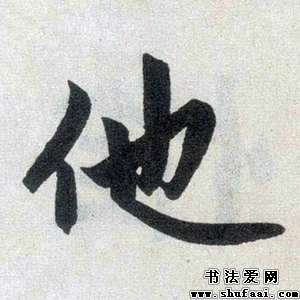 他
书法爱网
www.shufaai.com